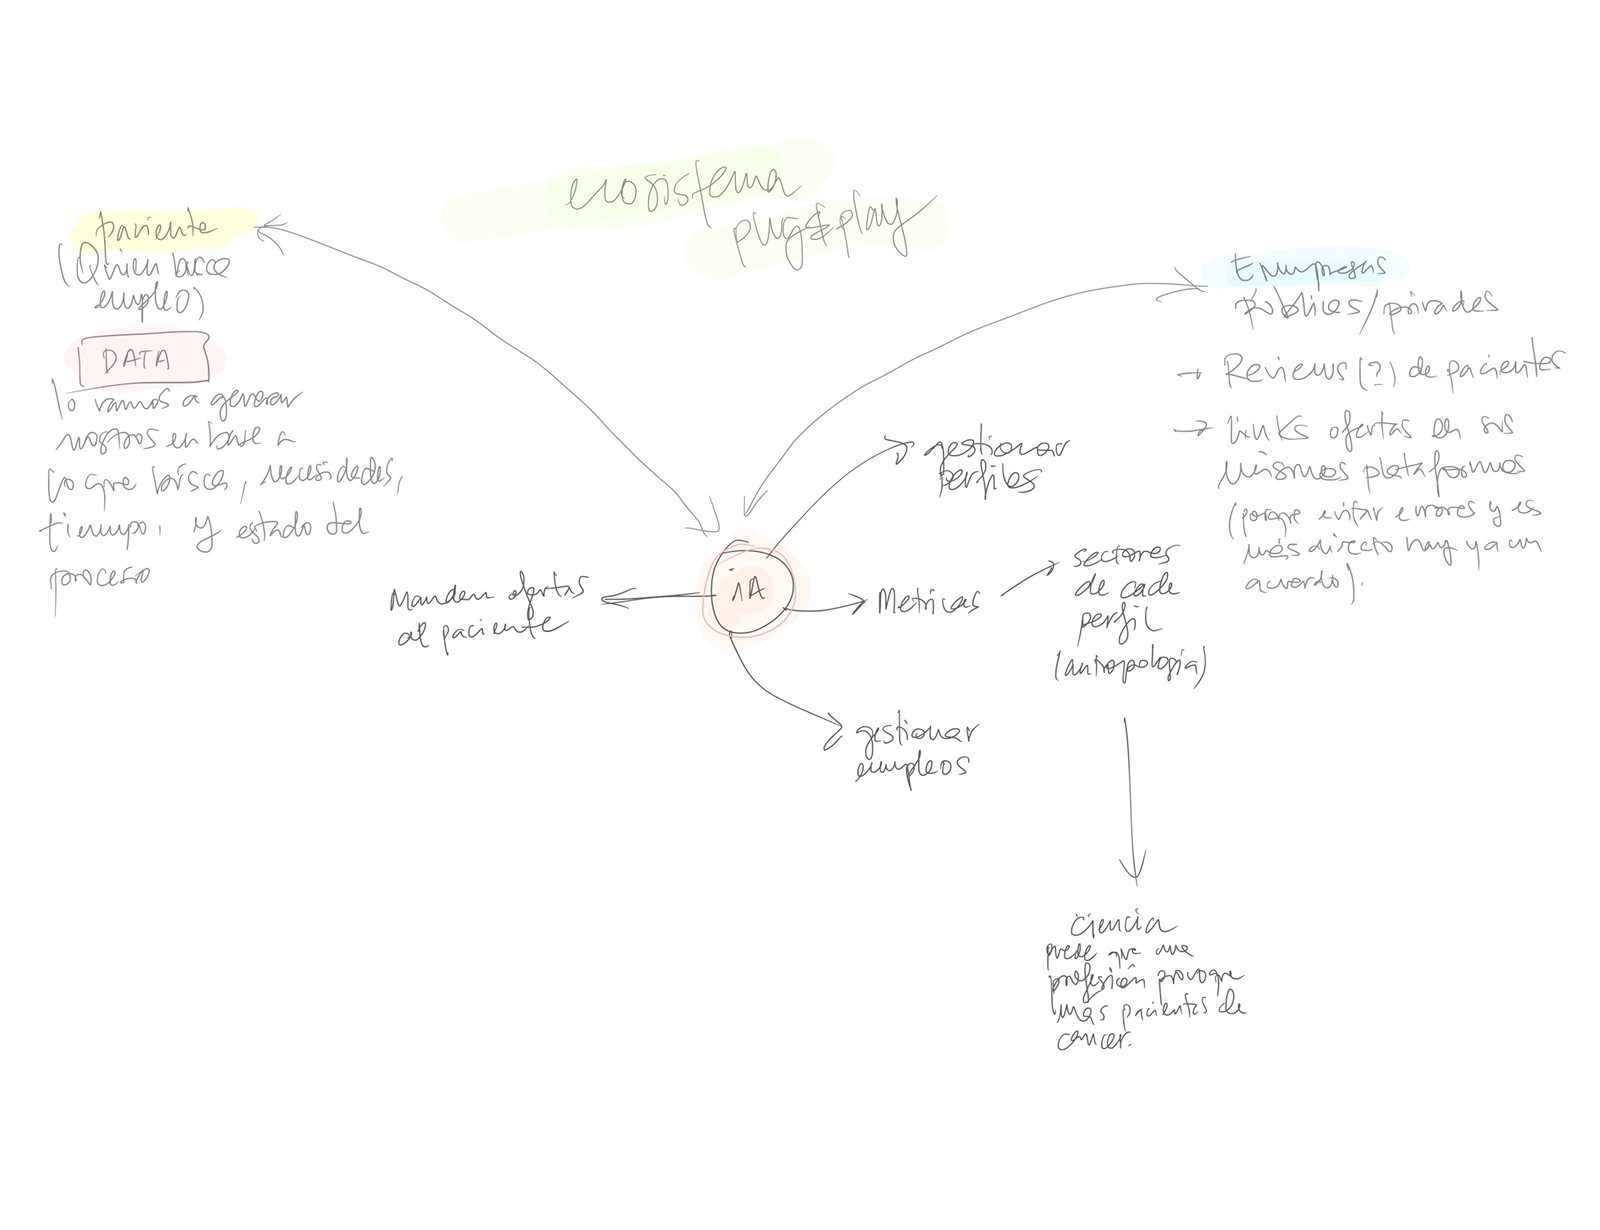 ecosistema
plug&play
paciente
(Quien busca
empleo)
DATA
lo vamos a generar
nosotros en base a
lo que busca, necesidades,
tiempo, y estado del
proceso
Empresas
públicas/privadas
→ Reviews (?) de pacientes
→ links ofertas en sus
mismas plataformas
(porque evitar errores y es
más directo hay ya un
acuerdo).
iA
gestionar
perfiles
Metricas
sectores
de cada
perfil
(antropología)
Manden ofertas
al paciente
gestionar
empleos
Ciencia
puede que una
profesión provoque
mas pacientes de
cancer.